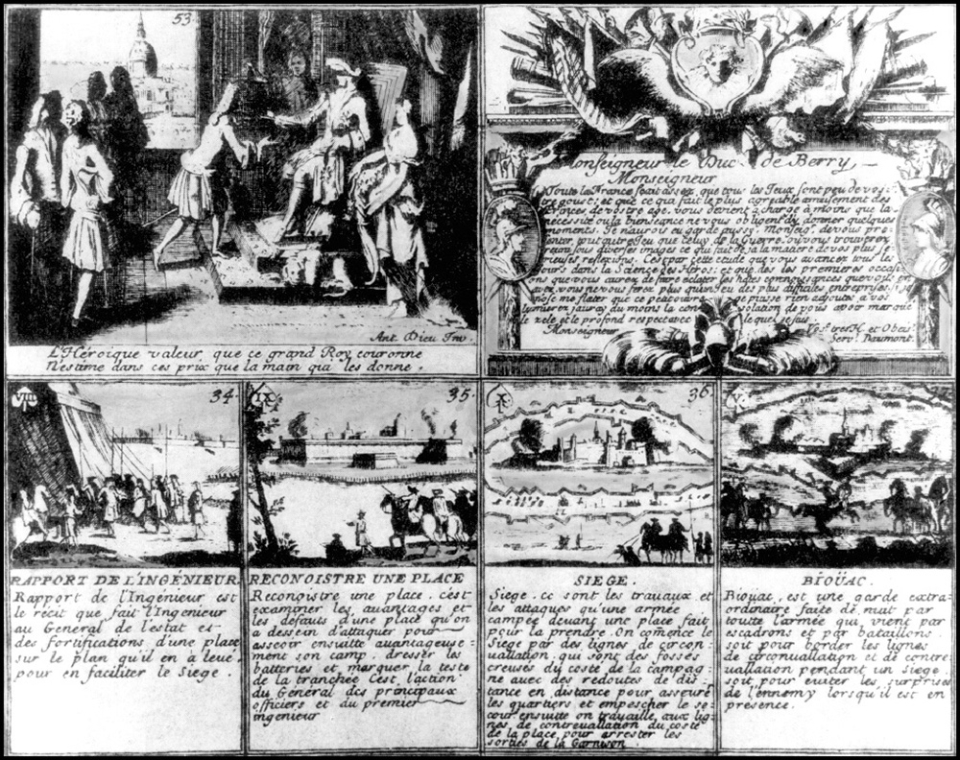 53.
Ant. Dieu Inv.
L'Héroique valeur, que ce grand Roy couronne
N'estime dans ces prix que la main qui les donne.
Monseigneur le Duc de Berry,
Monseigneur
Toute la France scait assez, que tous les Jeux sont peu de vos-
tre goust; et que ce qui fait le plus agreable amusement des
Princes de vostre age, vous devient à charge à moins que la
necessité ou la bienseance ne vous obligent d'y donner quelques
moments. Je n'aurois eu garde aussy, Monseigr. de vous pre-
senter tout autre Jeu que celuy de la Guerre, ou vous trouverez
sous diverses images ce qui fait deja la matiere de vos plus se-
rieuses reflexions. C'est par cette etude que vous avancez tous les
jours dans la Science des Heros; et que des les premieres occasi-
ons que vous aurez de faire éclater les hautes connoissances que vous en
avez, vous ne vous ferez plus qu'un Jeu des plus difficiles entreprises. Je
n'ose me flater que ce peu d'ouvrage puisse rien adjouter à vos
lumieres j'auray du moins la consolation de vous avoir marqué
le zele et le profond respect avec lequel je suis.
Monseigneur
Vostre tres H. et Obeist.
Servr. Daumont.
VIII
34.
RAPPORT DE L'INGÉNIEUR.
Rapport de l'Ingénieur est
le récit que fait l'Ingenieur
au General de l'estat et
des fortifications d'une place
sur le plan qu'il en à levé
pour en faciliter le Siege.
IX
35.
RECONOISTRE UNE PLACE
Reconoistre une place, c'est
examiner les avantages et
les défauts d'une place qu'on
a dessein d'attaquer pour
asseoir ensuitte avantageuse-
ment son camp, dresser les
batteries et marquer la teste
de la tranchée C'est l'action
du Général des principaux
officiers et du premier
ingenieur
X
36.
SIEGE.
Siege. ce sont les travaux et
les attaques qu'une armée
campée devant une place fait
pour la prendre. On comence le
Siege par des lignes de circon-
uallation, qui sont des fossés
creusés du costé de la campag-
ne avec des redoutes de dis-
tance en distance pour asseuré
les quartiers et empescher le se-
cour ensuitte on travaille aux lig-
nes de contreuallation du costé
de la place pour arrester les
sorties de la Garnison.
V.
BIOÜAC.
Bioüac. est une garde extra-
ordinaire faite de nuit par
toutte l'armée qui vient par
escadrons et par bataillons.
soit pour border les lignes
de circonuallation et de contre-
uallation pendant un siege
soit pour eviter les surprises
de l'ennemy lorsqu'il est en
presence.